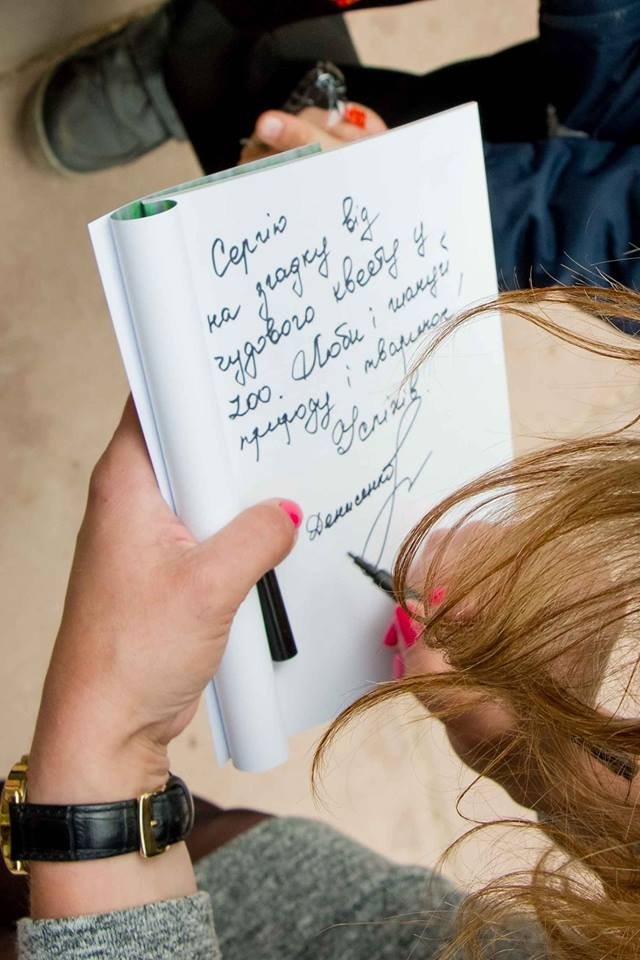 Сергію
на згадку від
чудового квесту у
zoo. Люби і шануй
природу і тваринок,
Успіхів.
Денисенко